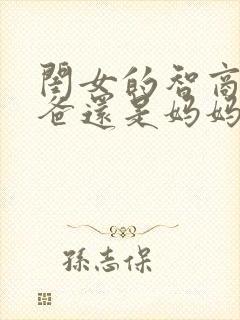 閨女的智商
爸還是媽媽
孫志保